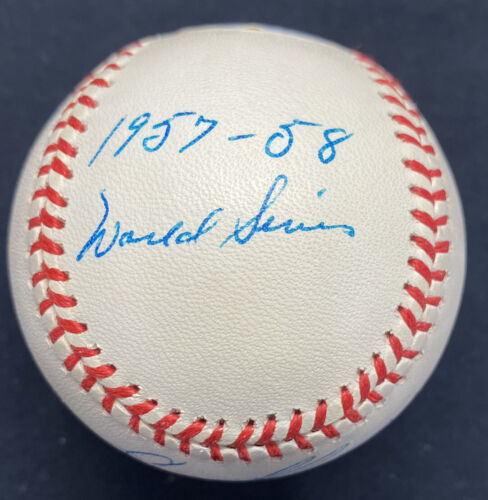 1957-58
World Series